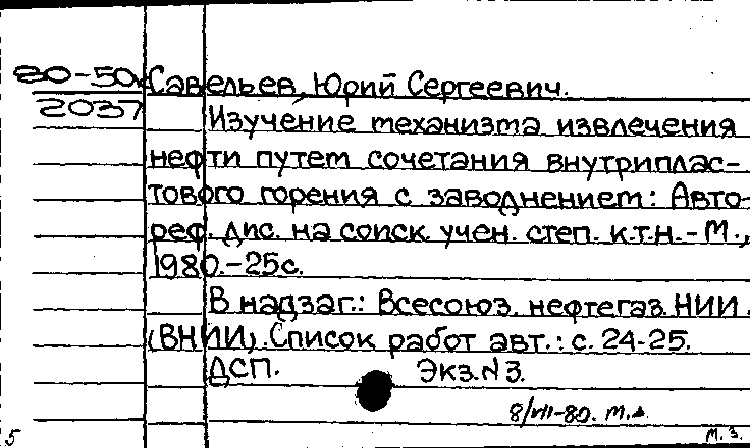 80-50
2037
Савельев, Юрий Сергеевич.
Изучение механизма извлечения
нефти путем сочетания внутриплас-
тового горения с заводнением: Авто-
реф. дис. на соиск. учен. степ. к.т.н. - М.,
1980. - 25с.
В надзаг.: Всесоюз. нефтегаз. НИИ.
(ВНИИ). Список работ авт.: с. 24-25.
ДСП. Экз. N 3.
8/VII-80.
5 М. З.